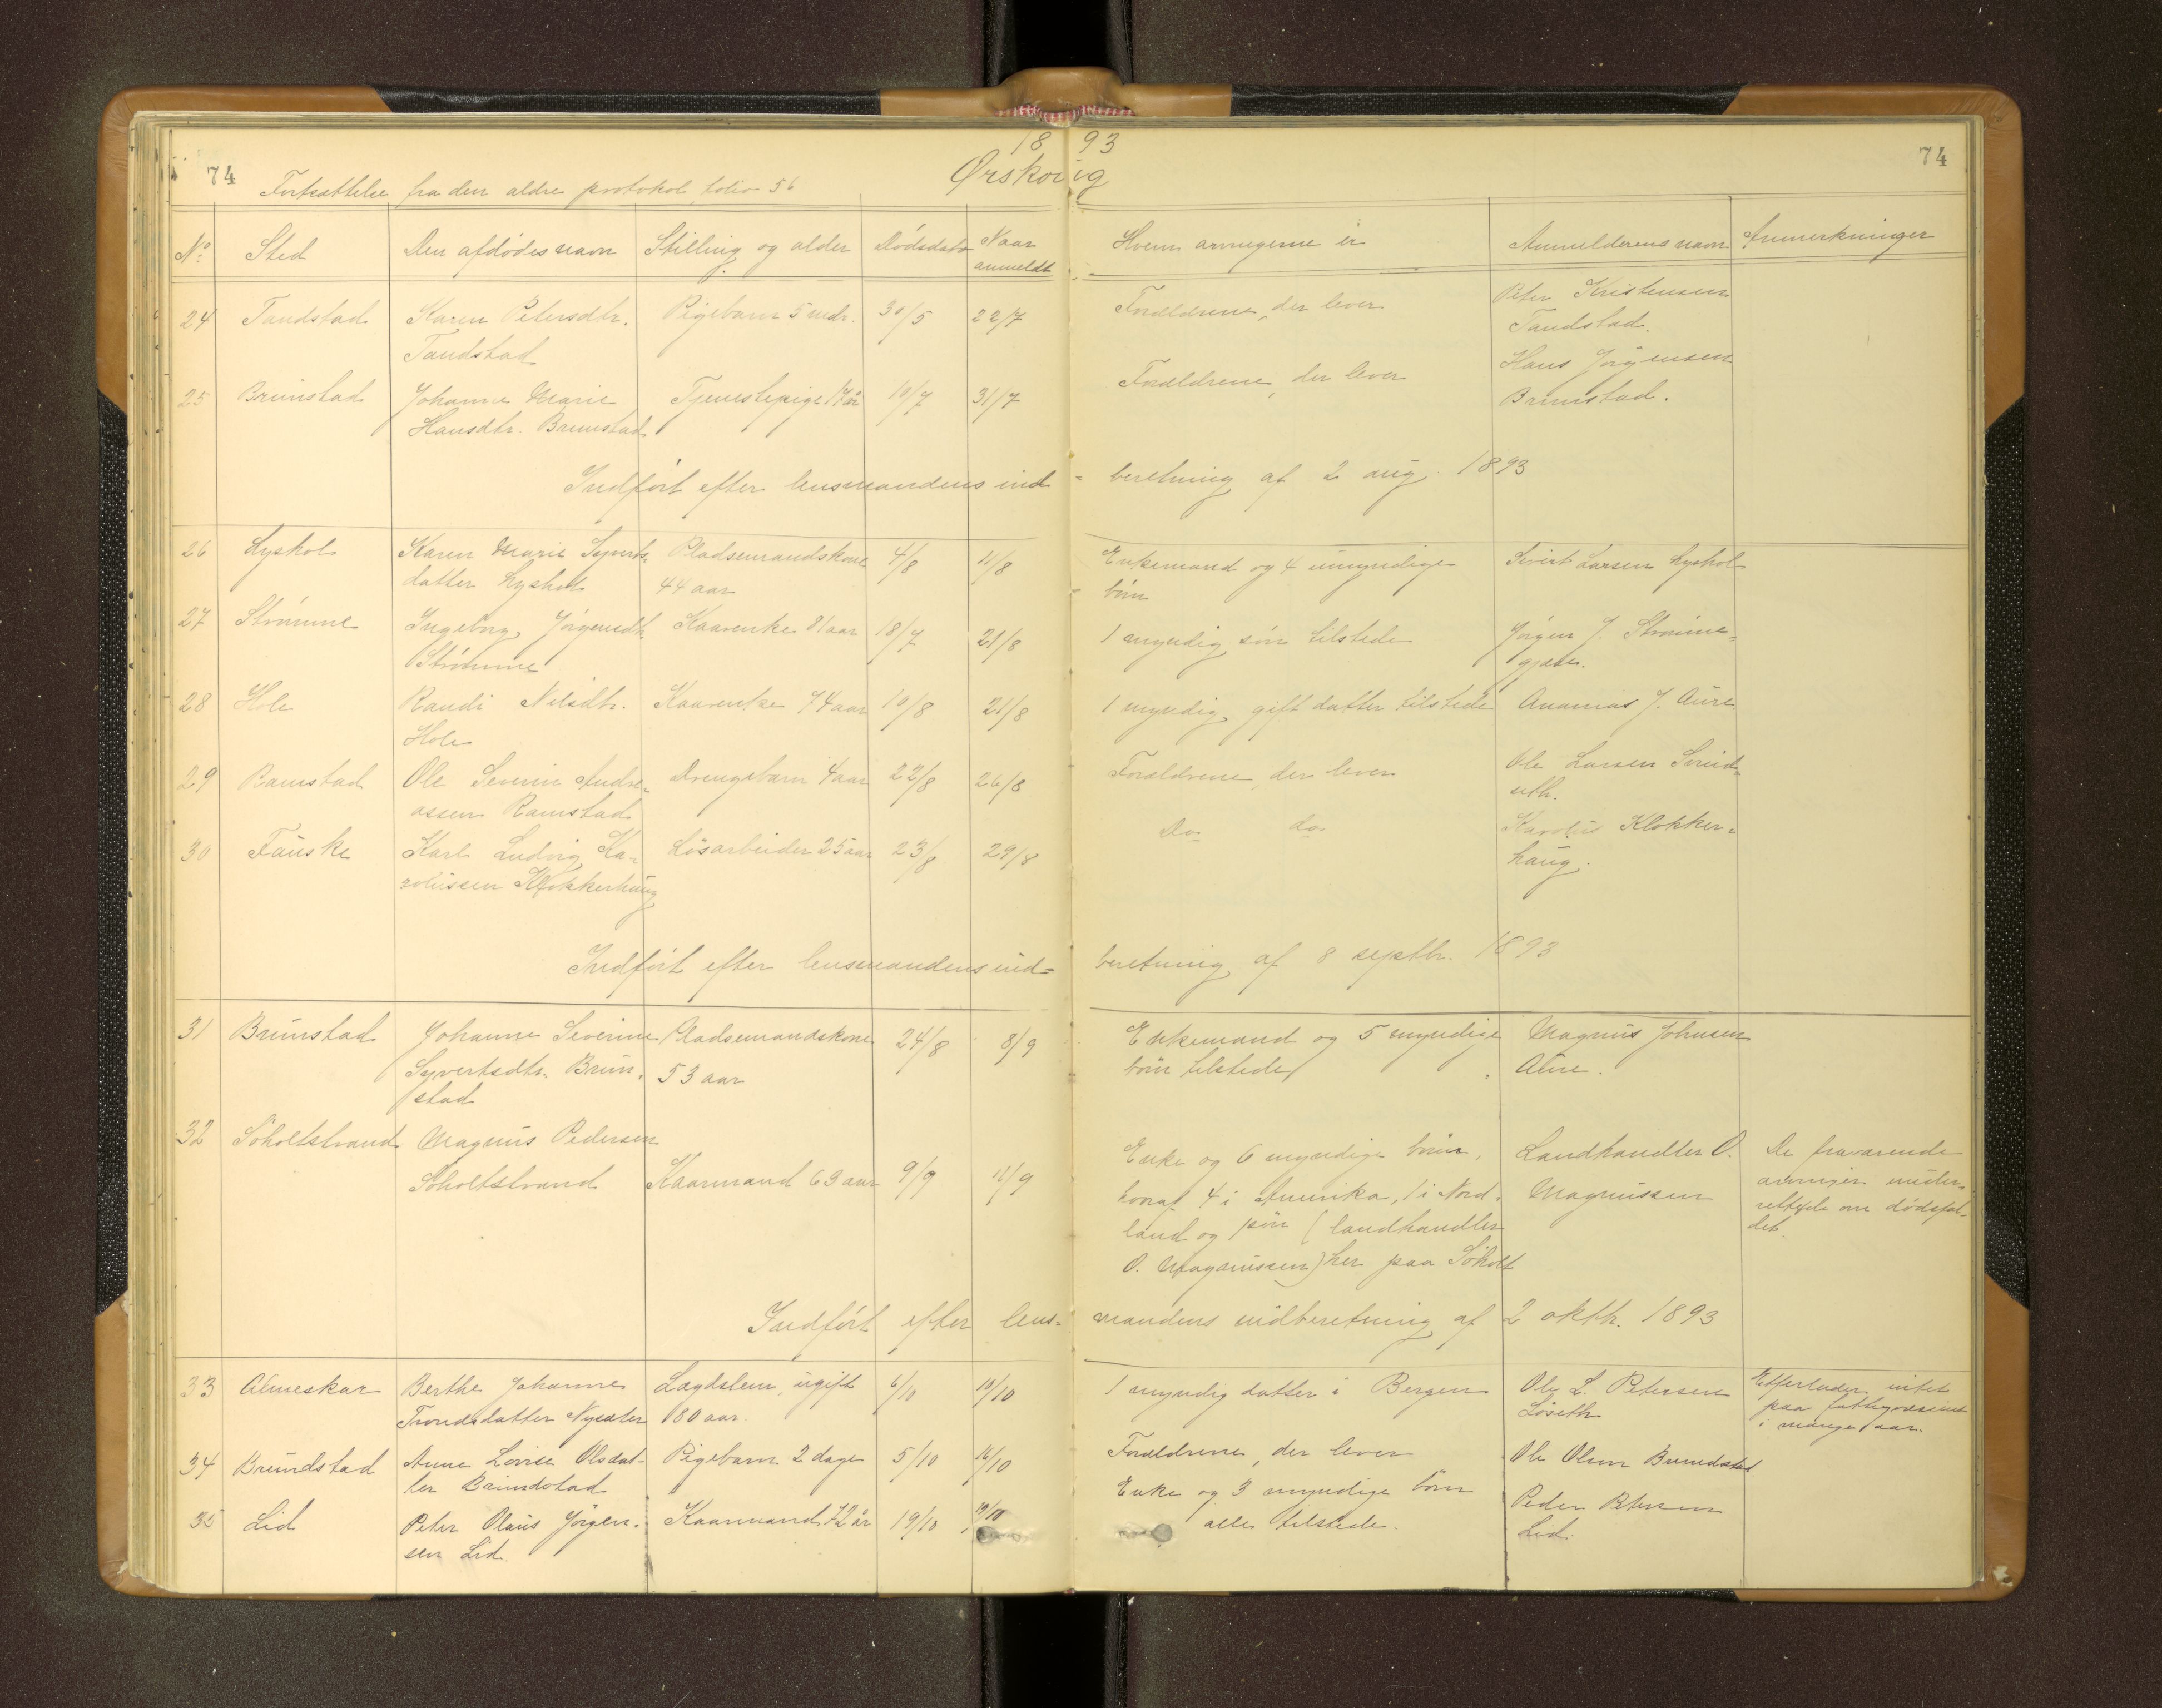 1893
74 Fortsættelse fra den ældre protokol, folio 56 Ørskoug 74
No Sted Den afdødes navn Stilling og alder Dødsdato Naar anmeldt Hvem arvingerne er Anmelderens navn Anmerkninger
24 Tandstad Karen Petersdtr. Pigebarn 5 mdr. 30/5 22/7 Forældrene, der lever Peter Kristensen
Tandstad Tandstad.
25 Brunstad Johanne Marie Tjenestepige 17 år 10/7 31/7 Forældrene, der lever Hans Jørgensen
Hansdtr. Brunstad Brunstad.
Indført efter lensmandens ind-beretning af 2 aug. 1893
26 Lyshol Karen Marie Syverts- Pladsemandskone 4/8 11/8 Enkemand og 4 umyndige Sivert Larsen Lyshol
datter Lyshol 44 aar børn
27 Strømme Ingeborg Jørgensdtr. Kaarenke 81 aar 18/7 21/8 1 myndig søn tilstede Jørgen J. Strømme-
Strømme gjære.
28 Hole Randi Nilsdtr. Kaarenke 74 aar 10/8 21/8 1 myndig, gift datter tilstede Ananias J. Aure
Hole
29 Ramstad Ole Severin Andre- Drengebarn 4 aar 22/8 26/8 Forældrene, der lever Ole Larsen Svind-
assen Ramstad seth.
30 Fauske Karl Ludvig Ka- Løsarbeider 25 aar 23/8 29/8 Do do Karolus Klokker-
rolussen Klokkerhaug haug.
Indført efter lensmandens ind-beretning af 8 septbr. 1893
31 Brunstad Johanne Severine Pladsemandskone 24/8 8/9 Enkemand og 5 myndige Magnus Johnsen
Syvertsdtr. Brun- 53 aar børn tilstede Aure.
stad
32 Søholtstrand Magnus Pedersen Enke og 6 myndige børn, Landhandler O. De fraværende
Søholtstrand Kaarmand 63 aar 9/9 11/9 hvoraf 4 i Amerika, 1 i Nord- Magnussen arvinger under-
land og søn (landhandler rettede om dødsfal-
O. Magnussen) her paa Søholt det.
Indført efter lens-mandens indberetning af 2 oktbr. 1893
33 Almeskar Berthe Johanne Lægdslem, ugift 6/10 10/10 1 myndig datter i Bergen Ole L. Petersen Efterlader intet
Trondsdatter Nysæter 80 aar. Løseth paa fattigvæsenet
i mange aar.
34 Brundstad Anne Lovise Olsdat- Pigebarn 2 dage 5/10 16/10 Forældrene, der lever Ole Olsen Brundstad.
ter Brundstad
35 Lid Peter Olaus Jørgen- Kaarmand 72 år 19/10 19/10 Enke og 3 myndige børn Peder Petersen
sen Lid. alle tilstede. Lid.